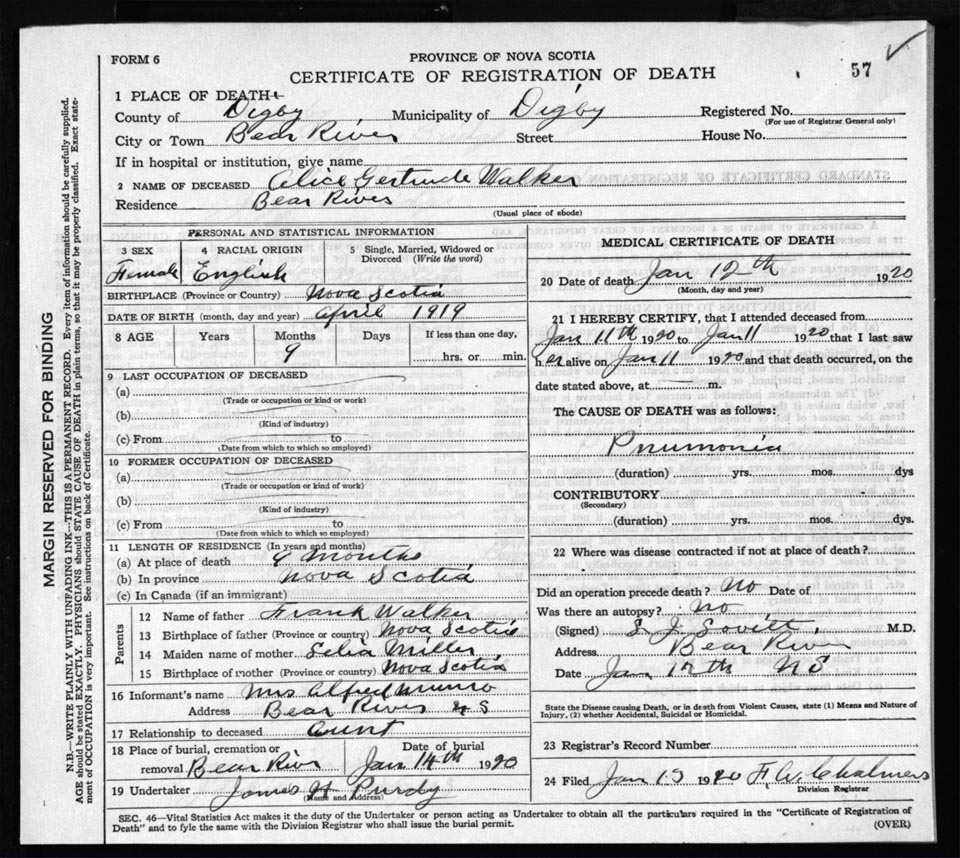 FORM 6
PROVINCE OF NOVA SCOTIA
CERTIFICATE OF REGISTRATION OF DEATH
57
1 PLACE OF DEATH
County of Digby Municipality of Digby Registered No.
(For use of Registrar General only)
City or Town Bear River Street House No.
If in hospital or institution, give name
2 NAME OF DECEASED Alice Gertrude Walker
Residence Bear River
(Usual place of abode)
PERSONAL AND STATISTICAL INFORMATION
3 SEX 4 RACIAL ORIGIN 5 Single, Married, Widowed or Divorced (Write the word)
Female English
BIRTHPLACE (Province or Country) Nova Scotia
DATE OF BIRTH (month, day and year) April 1919
8 AGE Years Months Days If less than one day,
9 hrs. or min.
9 LAST OCCUPATION OF DECEASED
(a)
(Trade or occupation or kind of work)
(b)
(Kind of industry)
(c) From to
(Date from which to which so employed)
10 FORMER OCCUPATION OF DECEASED
(a)
(Trade or occupation or kind of work)
(b)
(Kind of industry)
(c) From to
(Date from which to which so employed)
11 LENGTH OF RESIDENCE (In years and months)
(a) At place of death 9 Months
(b) In province Nova Scotia
(c) In Canada (if an immigrant)
Parents
12 Name of father Frank Walker
13 Birthplace of father (Province or country) Nova Scotia
14 Maiden name of mother Celia Miller
15 Birthplace of mother (Province or country) Nova Scotia
16 Informant's name Mrs Alfred Munro
Address Bear River N S
17 Relationship to deceased Aunt
18 Place of burial, cremation or removal Bear River Date of burial Jan 14th 1920
19 Undertaker James H Purdy
(Name and Address)
MEDICAL CERTIFICATE OF DEATH
20 Date of death Jan 12th 1920
(Month, day and year)
21 I HEREBY CERTIFY, that I attended deceased from
Jan 11th 1920 to Jan 11 1920 that I last saw
her alive on Jan 11 1920 and that death occurred, on the
date stated above, at m.
The CAUSE OF DEATH was as follows:
Pnumonia
(duration) yrs. mos. dys
CONTRIBUTORY
(Secondary)
(duration) yrs. mos. dys.
22 Where was disease contracted if not at place of death?
Did an operation precede death? No Date of
Was there an autopsy? No
(Signed) L. J. Lovitt, M.D.
Address Bear River
Date Jan 12th NS
State the Disease causing Death, or in death from Violent Causes, state (1) Means and Nature of
Injury, (2) whether Accidental, Suicidal or Homicidal.
23 Registrar's Record Number
24 Filed Jan 1920 F. W. Chalmers
Division Registrar
SEC. 46—Vital Statistics Act makes it the duty of the Undertaker or person acting as Undertaker to obtain all the particulars required in the "Certificate of Registration of
Death" and to fyle the same with the Division Registrar who shall issue the burial permit.
(OVER)
MARGIN RESERVED FOR BINDING
N.B.—WRITE PLAINLY WITH UNFADING INK—THIS IS A PERMANENT RECORD. Every item of information should be carefully supplied.
AGE should be stated EXACTLY. PHYSICIANS should STATE CAUSE OF DEATH in plain terms, so that it may be properly classified. Exact statement of OCCUPATION is very important. See instructions on back of Certificate.